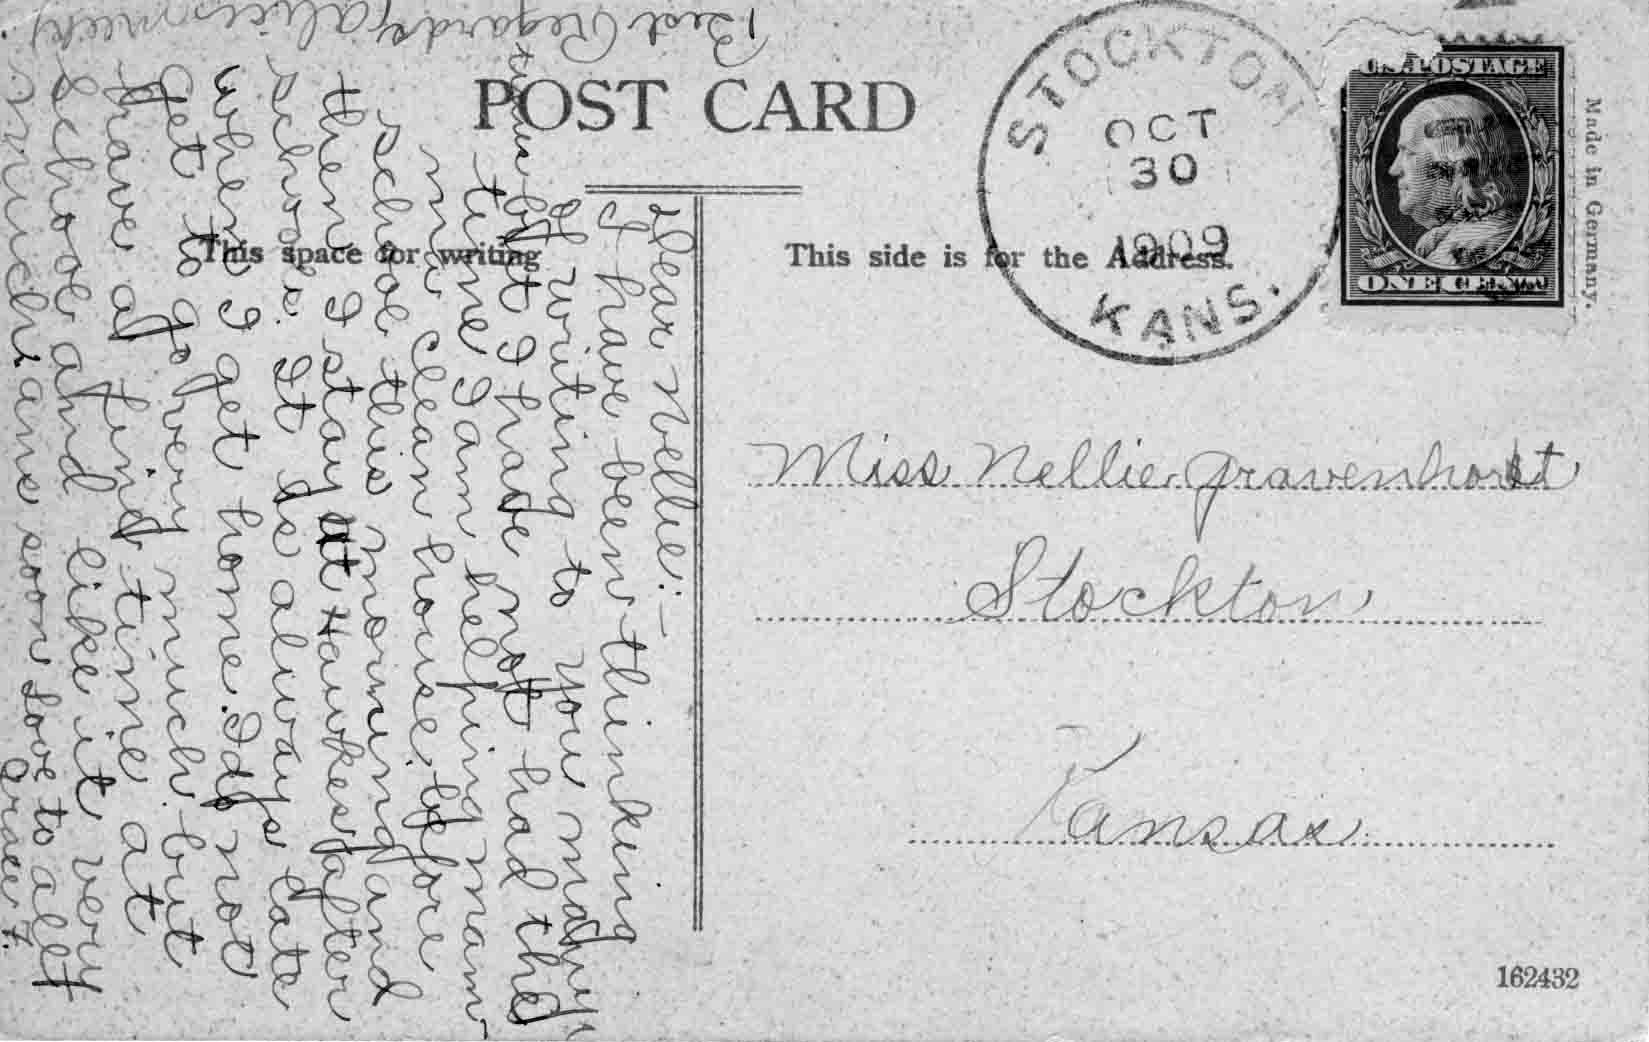 POST CARD
This space for writing
This side is for the Address.
STOCKTON
OCT
30
1909
KANS.
U.S. POSTAGE
ONE CENT
Made in Germany.
Miss Nellie Gravenhorst
Stockton
Kansas
162432
Dear Nellie:-
I have been thinking
of writing to you many
times but I have not had the
time I am helping mam
me clean house before
school this morning and
then I stay at Hawkes after
school. It is always late
when I get home. I do not
get to go very much but
have a fine time at
school and like it very
much. ans soon Love to all
Irnee F.
Best Regards